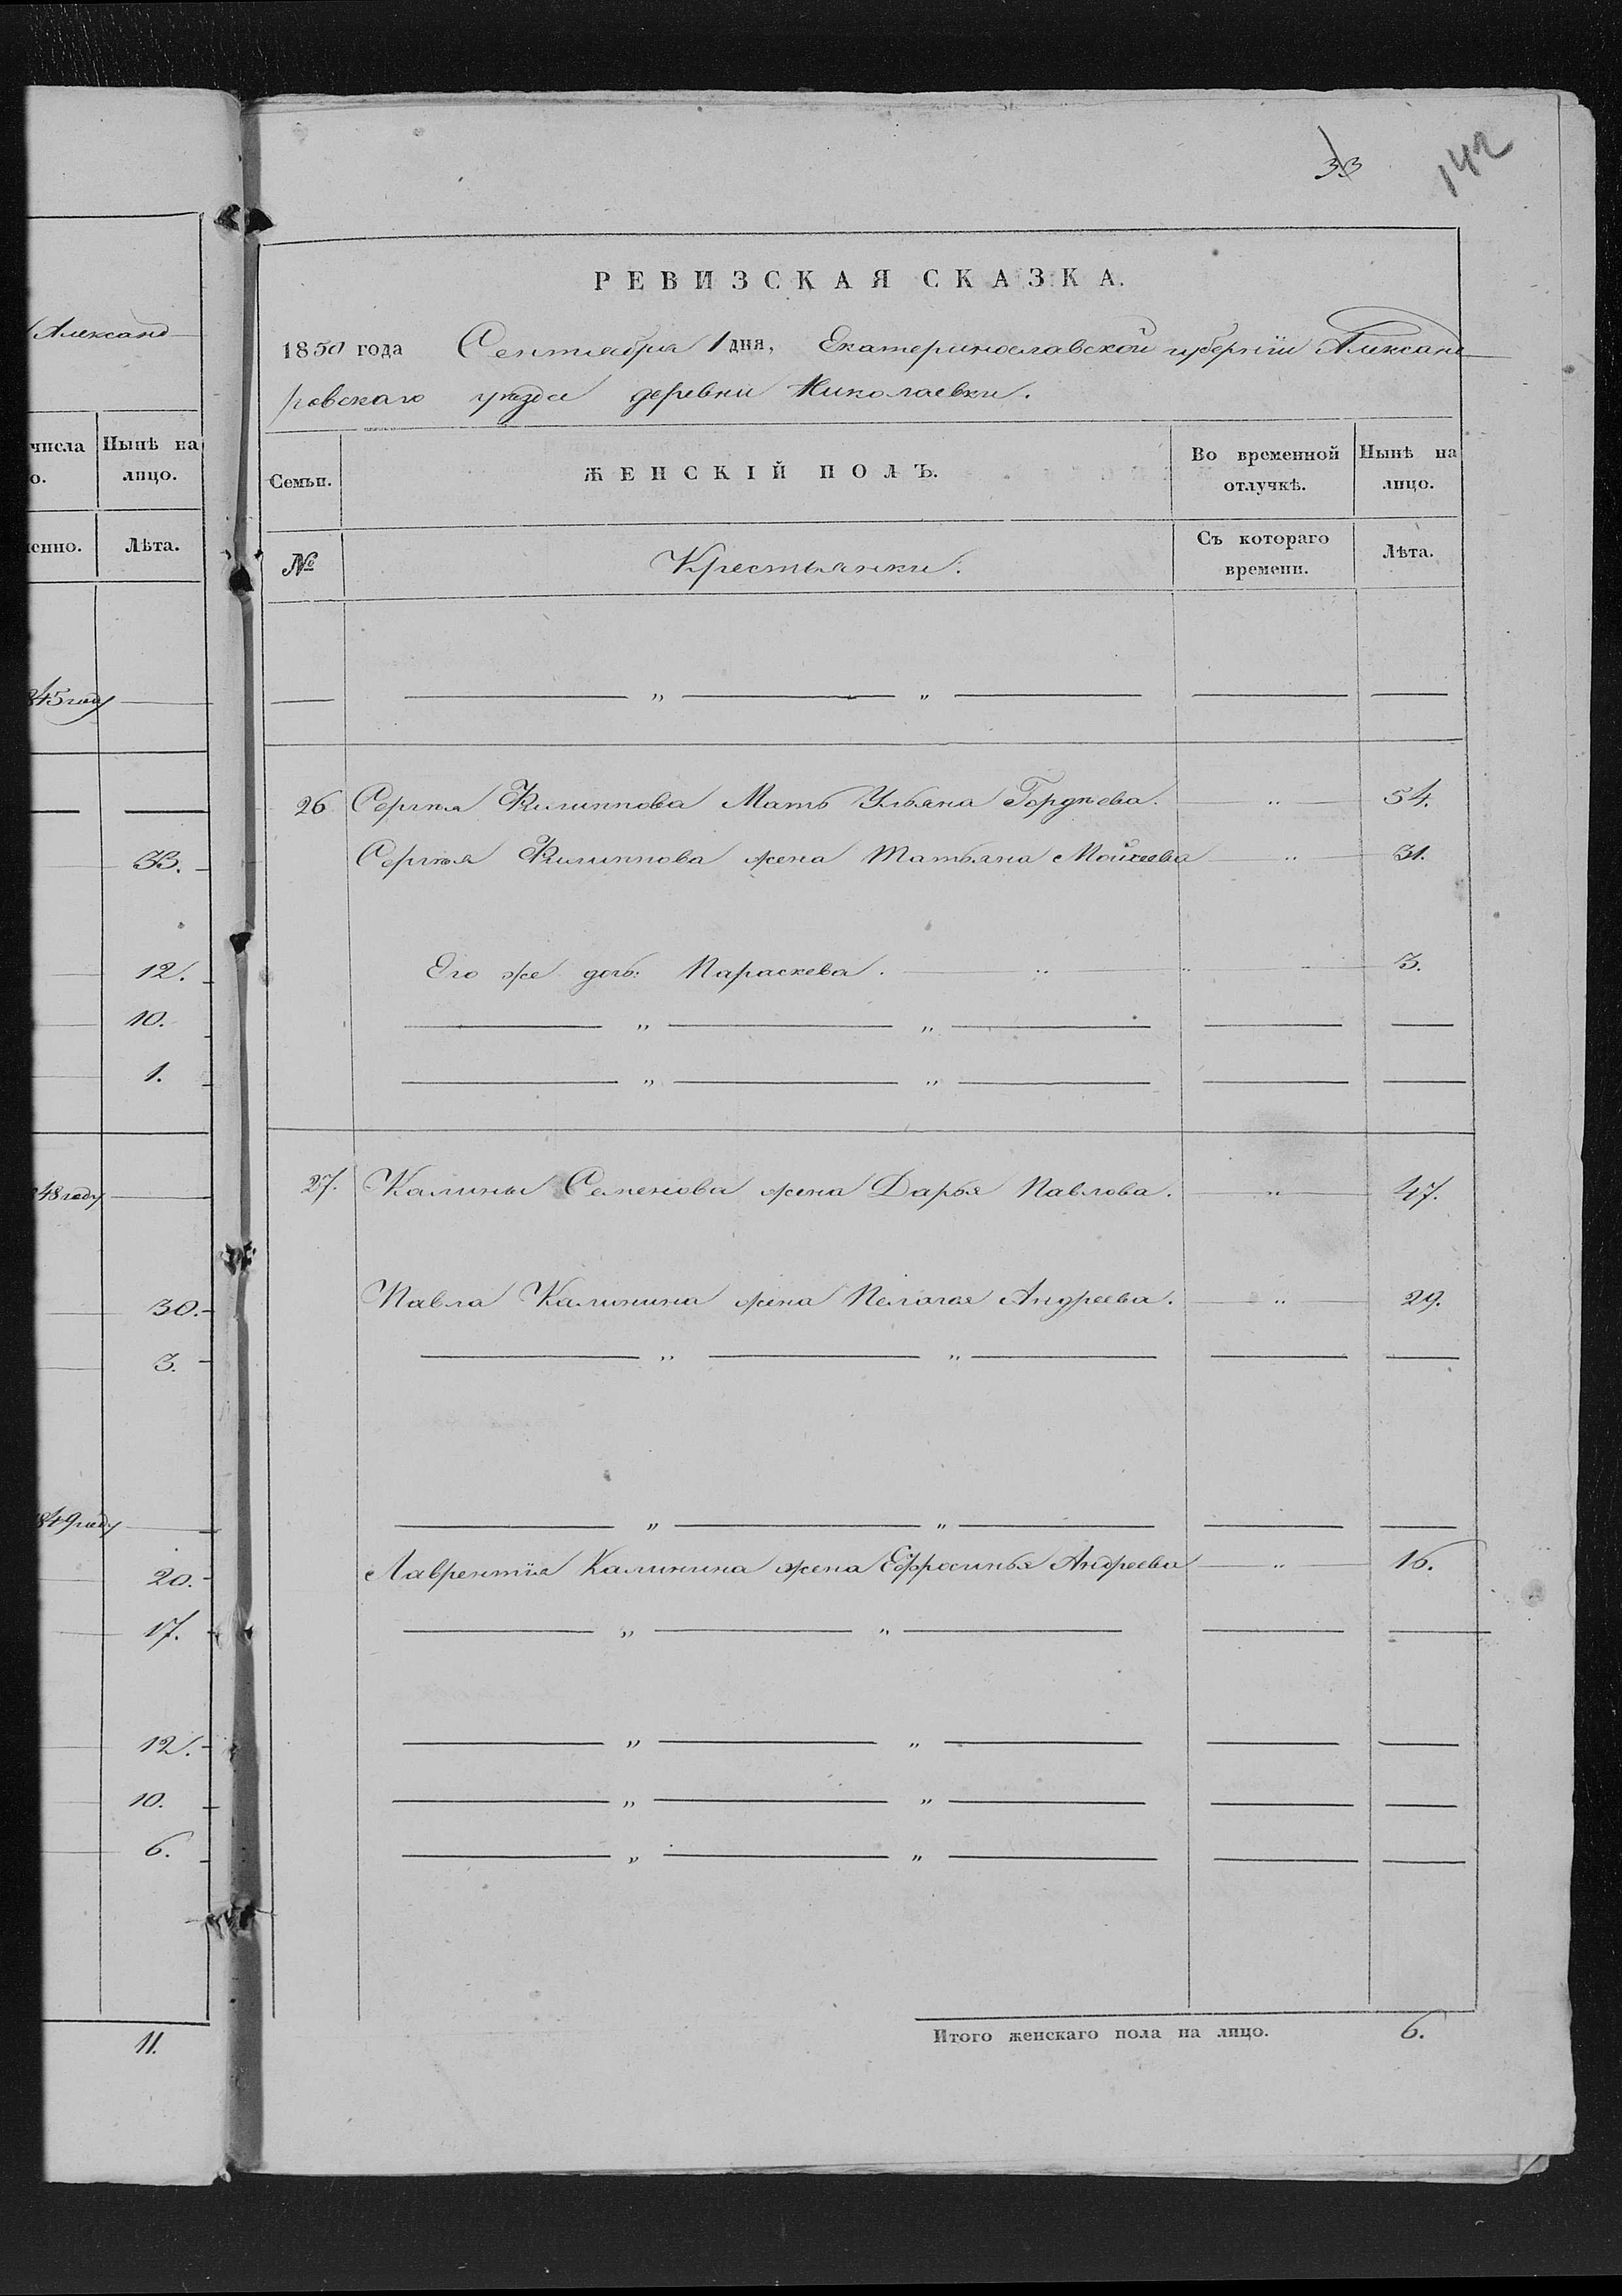 Александ
числа Нынѣ на
о. лицо.
енно. Лѣта.
845 году
33.
12.
10.
1.
48 году
30.
3.
849 году
20.
17.
12.
10.
6.
11.
33 142
РЕВИЗСКАЯ СКАЗКА.
1850 года Сентября 1 дня, Екатеринославской губерніи Александ
ровскаго уѣзда деревни Николаевки.
Семьи. ЖЕНСКІЙ ПОЛЪ. Во временной отлучкѣ. Нынѣ на лицо.
№ Крестьянки. Съ котораго времени. Лѣта.
— „ — „ — — —
26 Сергѣя Филиппова Мать Ульяна Гордѣева. — „ — 54.
Сергѣя Филиппова жена Татьяна Мойсеева — „ — 31.
Его же дочь: Параскева. — „ — „ — 3.
— „ — „ — — —
— „ — „ — — —
27. Калины Семенова жена Дарья Павлова. — „ — 47.
Павла Калинина жена Пелагея Андреева. — „ — 29.
— „ — „ — — —
— „ — „ — — —
Лаврентія Калинина жена Ефросинья Андреева — „ — 16.
— „ — „ — — —
— „ — „ — — —
— „ — „ — — —
— „ — „ — — —
Итого женскаго пола на лицо. 6.